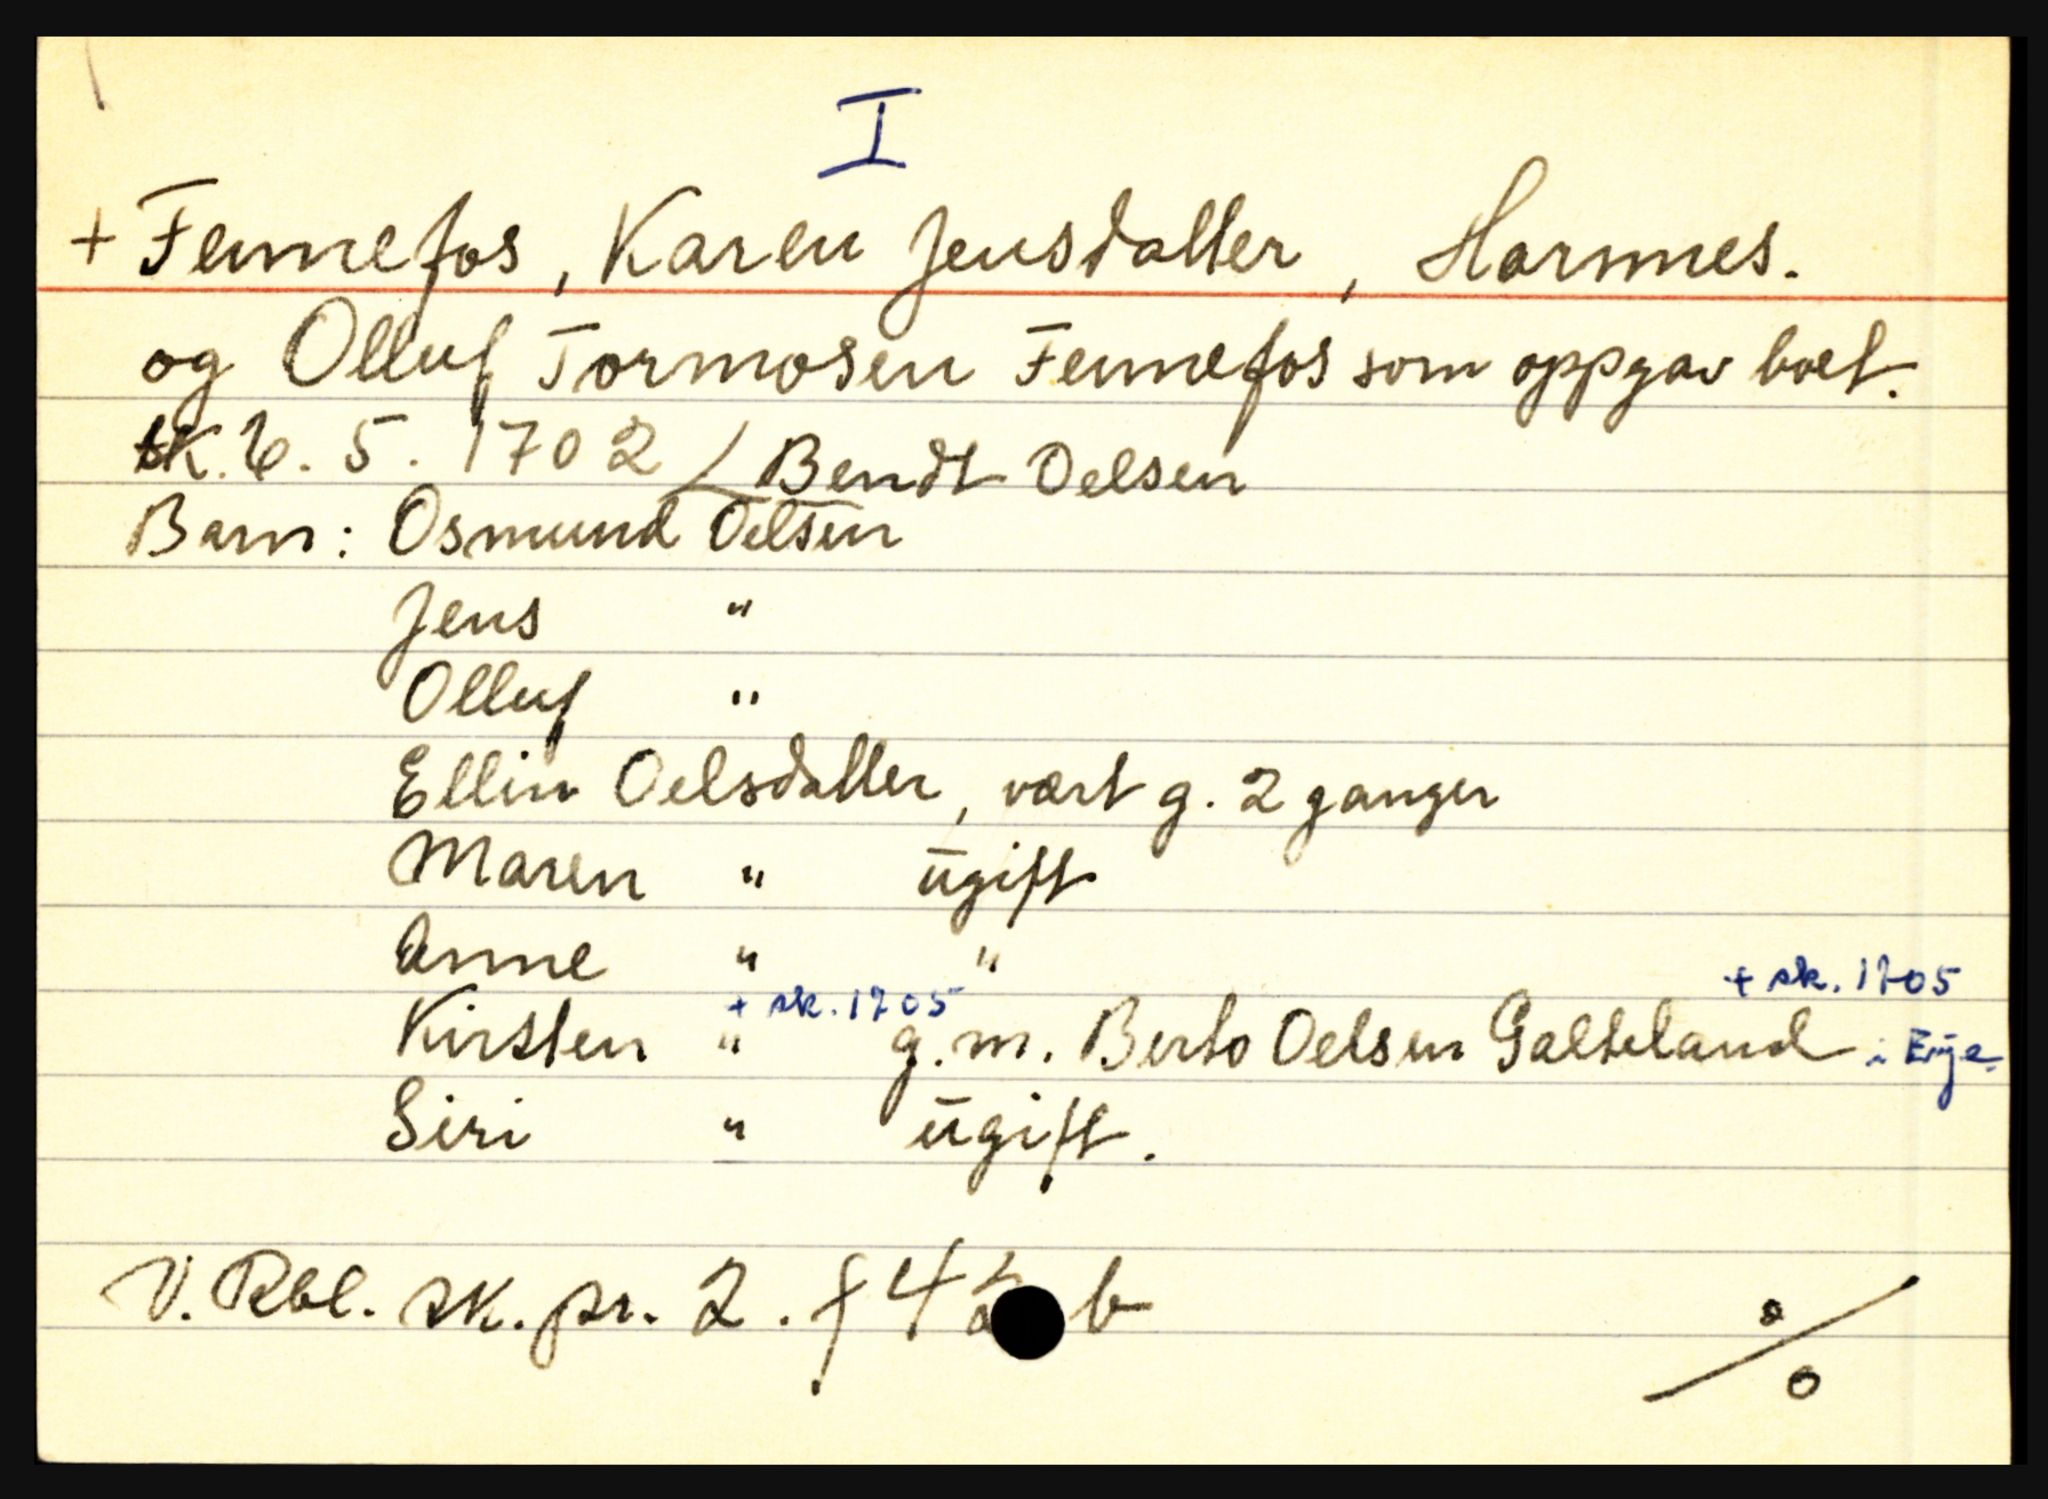 I
+ Fennefos, Karen Jensdatter, Hornnes.
og Olluf Tormosen Fennefos som oppgav boet.
sk. 6. 5. 1702 / Bendt Oelsen
Barn: Osmund Oelsen
Jens "
Olluf "
Ellin Oelsdatter, vært g. 2 ganger
Maren " ugift
Anne " "
+ sk. 1705 + sk. 1705
Kirsten " g.m. Berto Oelsen Galteland i Evje
Siri " ugift.
V. Rbl. sk. pr. 2. f 42 b
%